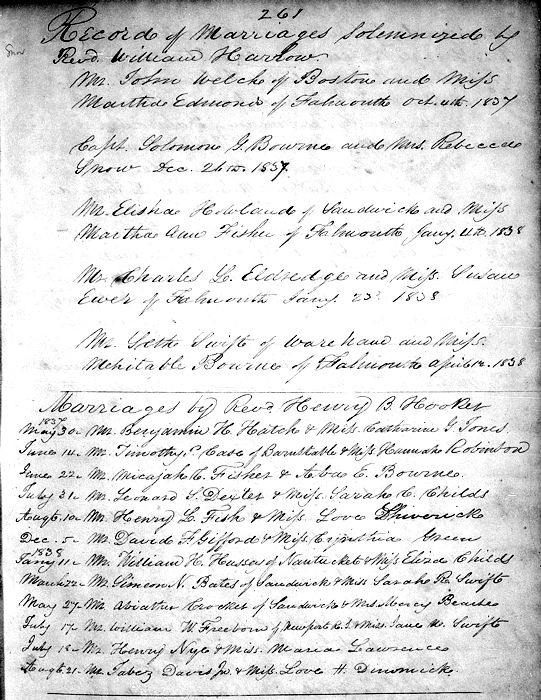 261
Record of Marriages Solemnized by
Snow
Revd. William Harlow.
Mr. John Welch of Boston and Miss
Martha Edmond of Falmouth Oct. 4th. 1837
Capt. Solomon G. Bourne and Mrs. Rebecca
Snow Dec. 26th. 1837.
Mr. Elisha Howland of Sandwich and Miss
Martha Ann Fisher of Falmouth Jany. 4th. 1838
Mr. Charles L. Eldredge and Miss. Susan
Ewer of Falmouth Jany. 23d. 1838
Mr. Seth Swift of Wareham and Miss.
Mehitable Bourne of Falmouth April 12. 1838
Marriages by Revd. Henry B. Hooker
1837
May 30- Mr. Benjamin H. Hatch & Miss. Catharine G. Jones
June 14- Mr. Timothy P. Case of Barnstable & Miss Hannah Robinson
June 22- Mr. Micajah C. Fisher & Alva E. Bourne
July 31- Mr. Leonard S. Dexter & Miss. Sarah C. Childs
Augt. 10- Mr. Henry L. Fish & Miss. Love Shiverick
Dec. 5- Mr. David F. Gifford & Miss. Cynthia Green
1838
Jany 11- Mr. William H. Hussey of Nantucket & Miss Eliza Childs
March 22- Mr. Simeon N. Bates of Sandwich & Miss Sarah R. Swift
May 27- Mr. Abiathar Crocker of Sandwich & Mrs. Mercy Bearse
July 17- Mr. William W. Freeborn of Newport R. I. & Miss. Jane W. Swift
July 18- Mr. Henry Nye & Miss. Maria Lawrence
Augt. 21- Mr. Jabez Davis Jr. & Miss. Love H. Dimmick.